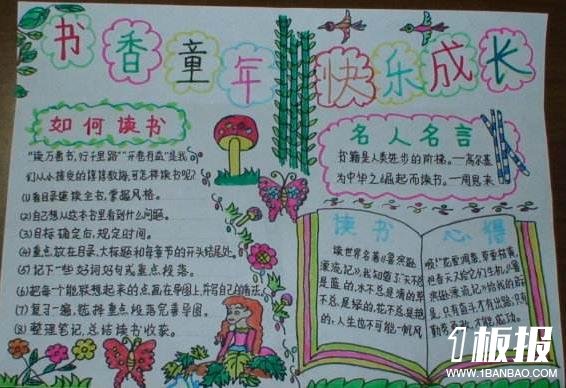 书香童年 快乐成长
如何读书
"读万卷书,行千里路""开卷有益"是我
们从小接受的谆谆教诲,可怎样读书呢?
(1)看目录建读全书,掌握风格。
(2)自己想从这本书里看到什么问题。
(3)目标确定后,规定时间。
(4)重点,放在目录、大标题和每章节的开头结尾处。
(5)记下一些好词好句或重点段落。
(6)把每个能联想起来的点画在导图上,并写自己的看法。
(7)复习一遍,选择重点段落完善导图。
(8)整理笔记,总结读书收获。
名人名言
书籍是人类进步的阶梯。—高尔基
为中华之崛起而读书。—周恩来
读书
读世界名著《鲁滨逊
漂流记》,我知道了:天不总
是蓝的,水不总是清的,草不
总是绿的,花不总是艳
的,人生也不可能一帆风
心得
顺!花凋谢,草要枯黄,
把春天又给它们生机。《鲁
滨逊漂流记》给我的启
是,只有奋斗才有出路,只有
勤劳勇敢,才能成功。
1板报
WWW.1BANBAO.COM